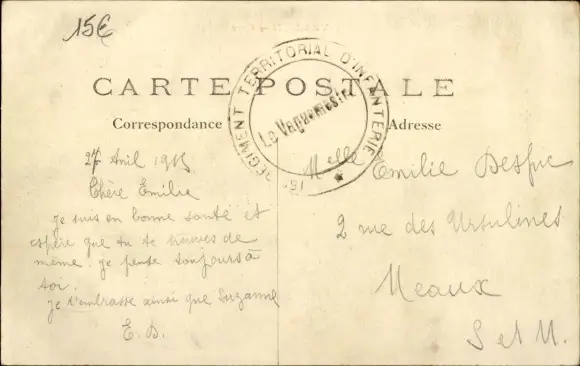 15€
CARTE POSTALE
RÉGIMENT TERRITORIAL D'INFANTERIE
Le Vaguemestre
Correspondance
Adresse
27 Avil 1915
Chère Emilie
je suis en bonne santé et
espère que tu te trouves de
même. je pense toujours à
toi.
je t'embrasse ainsi que Suzanne
E. D.
Melle Emilie
2 rue des Ursulines
Meaux
S et M.